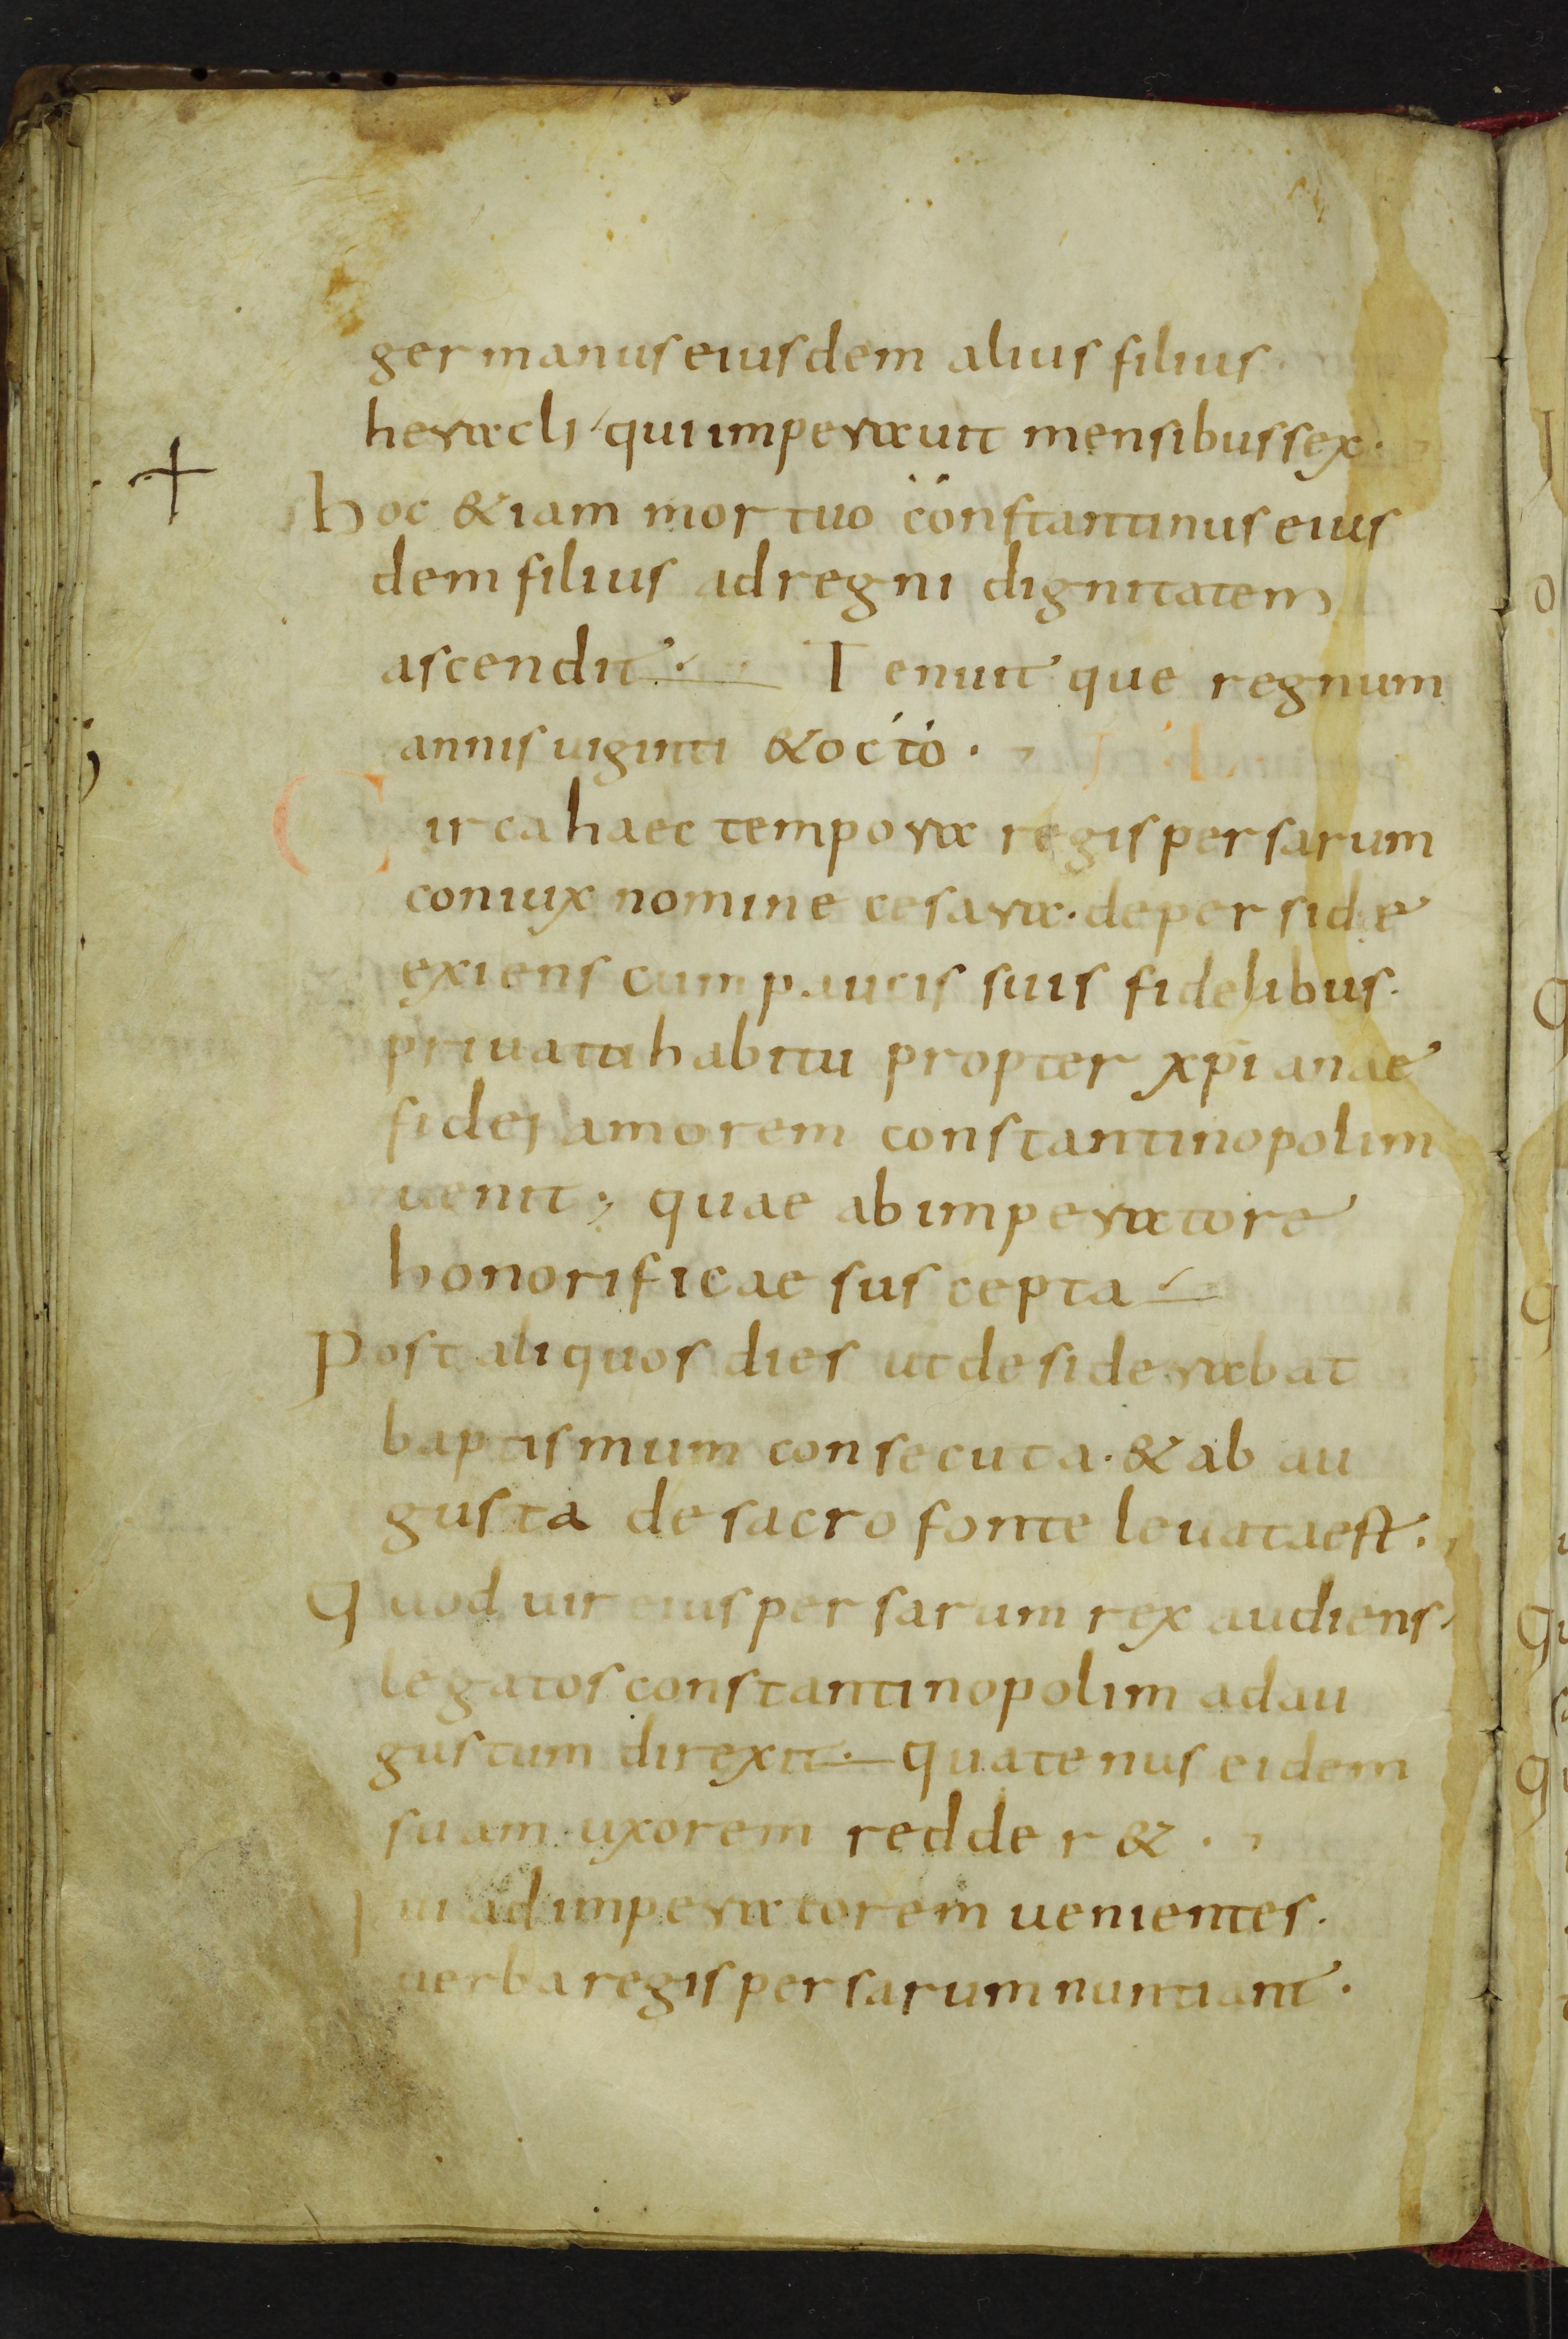 germanus eiusdem alius filius.
heracli qui imperauit mensibus sex.
hoc &iam mortuo constantinus eius
dem filius ad regni dignitatem
ascendit. Tenuit que regnum
annis uiginti & octo.
Circa haec tempora regis persarum
coniux nomine cesara. de perside
exiens cum paucis suis fidelibus.
priuati habitu propter xp̄ianae
fidei amorem constantinopolim
uenit; quae ab imperatore
honorificae suscepta
Post aliquos dies ut desiderabat
baptismum consecuta. & ab au
gusta de sacro fonte leuata est.
Quod uir eius persarum rex audiens.
legatos constantinopolim ad au
gustum direxit. quatenus eidem
suam uxorem redder&.
ui ad imperatorem uenientes.
uerba regis persarum nuntiant.